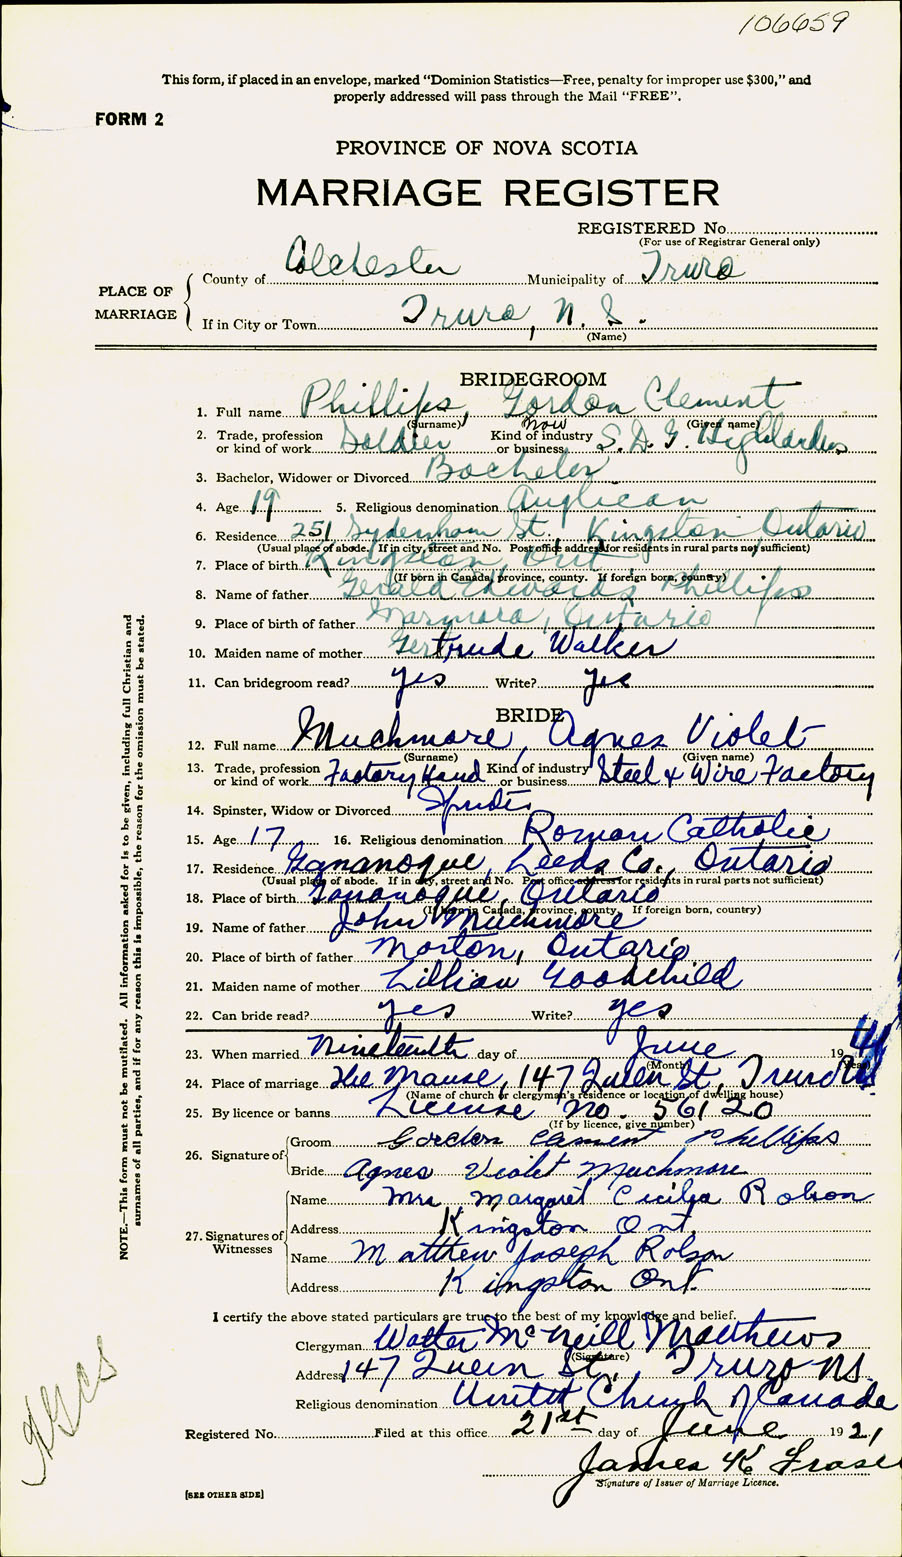 106659
This form, if placed in an envelope, marked "Dominion Statistics—Free, penalty for improper use $300," and
properly addressed will pass through the Mail "FREE".
FORM 2
PROVINCE OF NOVA SCOTIA
MARRIAGE REGISTER
REGISTERED No.
(For use of Registrar General only)
PLACE OF MARRIAGE
County of Colchester Municipality of Truro
If in City or Town Truro, N. S.
(Name)
BRIDEGROOM
1. Full name Phillips, Gordon Clement
(Surname) (Given name)
2. Trade, profession or kind of work Soldier Kind of industry or business now S. D. G. Highlanders
3. Bachelor, Widower or Divorced Bachelor
4. Age 19 5. Religious denomination Anglican
6. Residence 251 Sydenham St., Kingston Ontario
(Usual place of abode. If in city, street and No. Post office address for residents in rural parts not sufficient)
7. Place of birth Kingston Ont
(If born in Canada, province, county. If foreign born, country)
8. Name of father Gerald Edwards Phillips
9. Place of birth of father Marmora, Ontario
10. Maiden name of mother Gertrude Walker
11. Can bridegroom read? yes Write? yes
BRIDE
12. Full name Muchmore, Agnes Violet
(Surname) (Given name)
13. Trade, profession or kind of work Factory Hand Kind of industry or business Steel & Wire Factory
14. Spinster, Widow or Divorced
15. Age 17 16. Religious denomination Roman Catholic
17. Residence Gananoque, Leeds Co., Ontario
(Usual place of abode. If in city, street and No. Post office address for residents in rural parts not sufficient)
18. Place of birth Gananoque, Ontario
(If born in Canada, province, county. If foreign born, country)
19. Name of father John Muchmore
20. Place of birth of father Morton, Ontario
21. Maiden name of mother Lillian Goodchild
22. Can bride read? yes Write? yes
23. When married Nineteenth day of June 19 41
(Month) (Year)
24. Place of marriage The Manse, 147 Queen St, Truro NS
(Name of church or clergyman's residence or location of dwelling house)
25. By licence or banns License No. 56120
(If by licence, give number)
26. Signature of
Groom Gordon Clement Phillips
Bride Agnes Violet Muchmore
27. Signatures of Witnesses
Name Mrs Margaret Cecilia Robson
Address Kingston Ont.
Name Matthew Joseph Robson
Address Kingston Ont.
I certify the above stated particulars are true to the best of my knowledge and belief.
Clergyman Walter McNeill Matthews
(Signature)
Address 147 Queen St., Truro NS.
Religious denomination United Church of Canada
Registered No. Filed at this office 21st day of June 19
James K Fraser
Signature of Issuer of Marriage Licence.
[SEE OTHER SIDE]
NOTE.—This form must not be mutilated. All information asked for is to be given, including full Christian and
surnames of all parties, and if for any reason this is impossible, the reason for the omission must be stated.